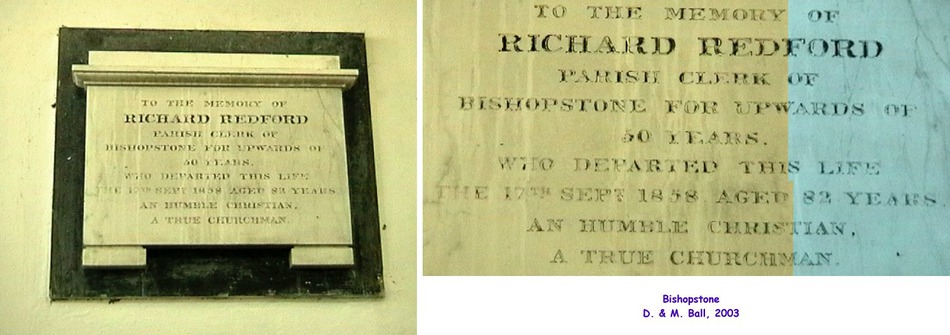 TO THE MEMORY OF
RICHARD REDFORD
PARISH CLERK OF
BISHOPSTONE FOR UPWARDS OF
50 YEARS.
WHO DEPARTED THIS LIFE
THE 17TH SEPT 1858 AGED 82 YEARS
AN HUMBLE CHRISTIAN,
A TRUE CHURCHMAN.
TO THE MEMORY OF
RICHARD REDFORD
PARISH CLERK OF
BISHOPSTONE FOR UPWARDS OF
50 YEARS.
WHO DEPARTED THIS LIFE
THE 17TH SEPT 1858 AGED 82 YEARS
AN HUMBLE CHRISTIAN,
A TRUE CHURCHMAN.
Bishopstone
D. & M. Ball, 2003